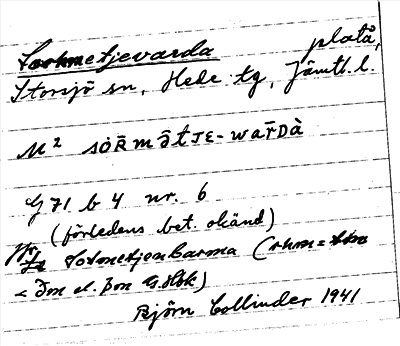 Sorhmetjevarda platå,
Storsjö sn, Hede tg, Jämtl. l.
M² sȯR̄mət̄JE-waR̄Dà
G 71 b 4 nr. 6
(förledens bet. okänd)
Sormetjenbarma (rhm =
< ðm el. þm G.Hbk)
Björn Collinder 1941